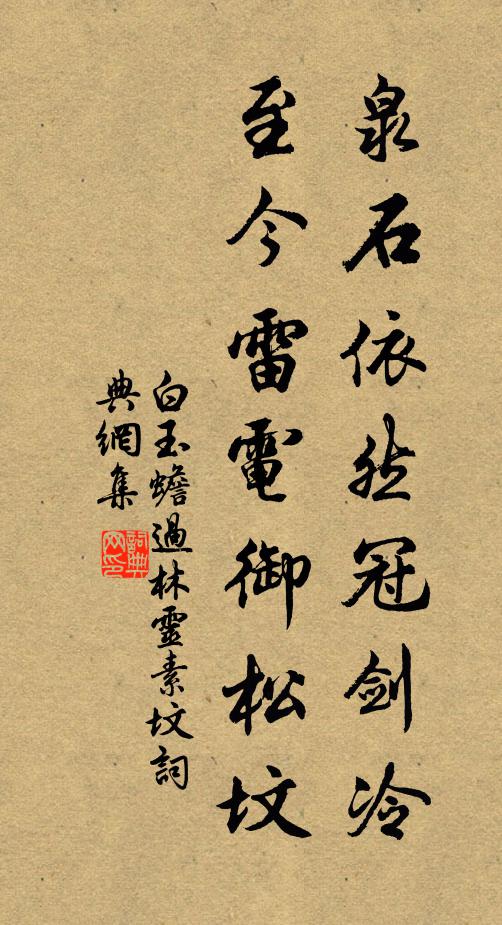 泉石依然冠剑冷
至今雷電御松坟
白玉蟾過林靈素坟詞
典網集
詞典
网印